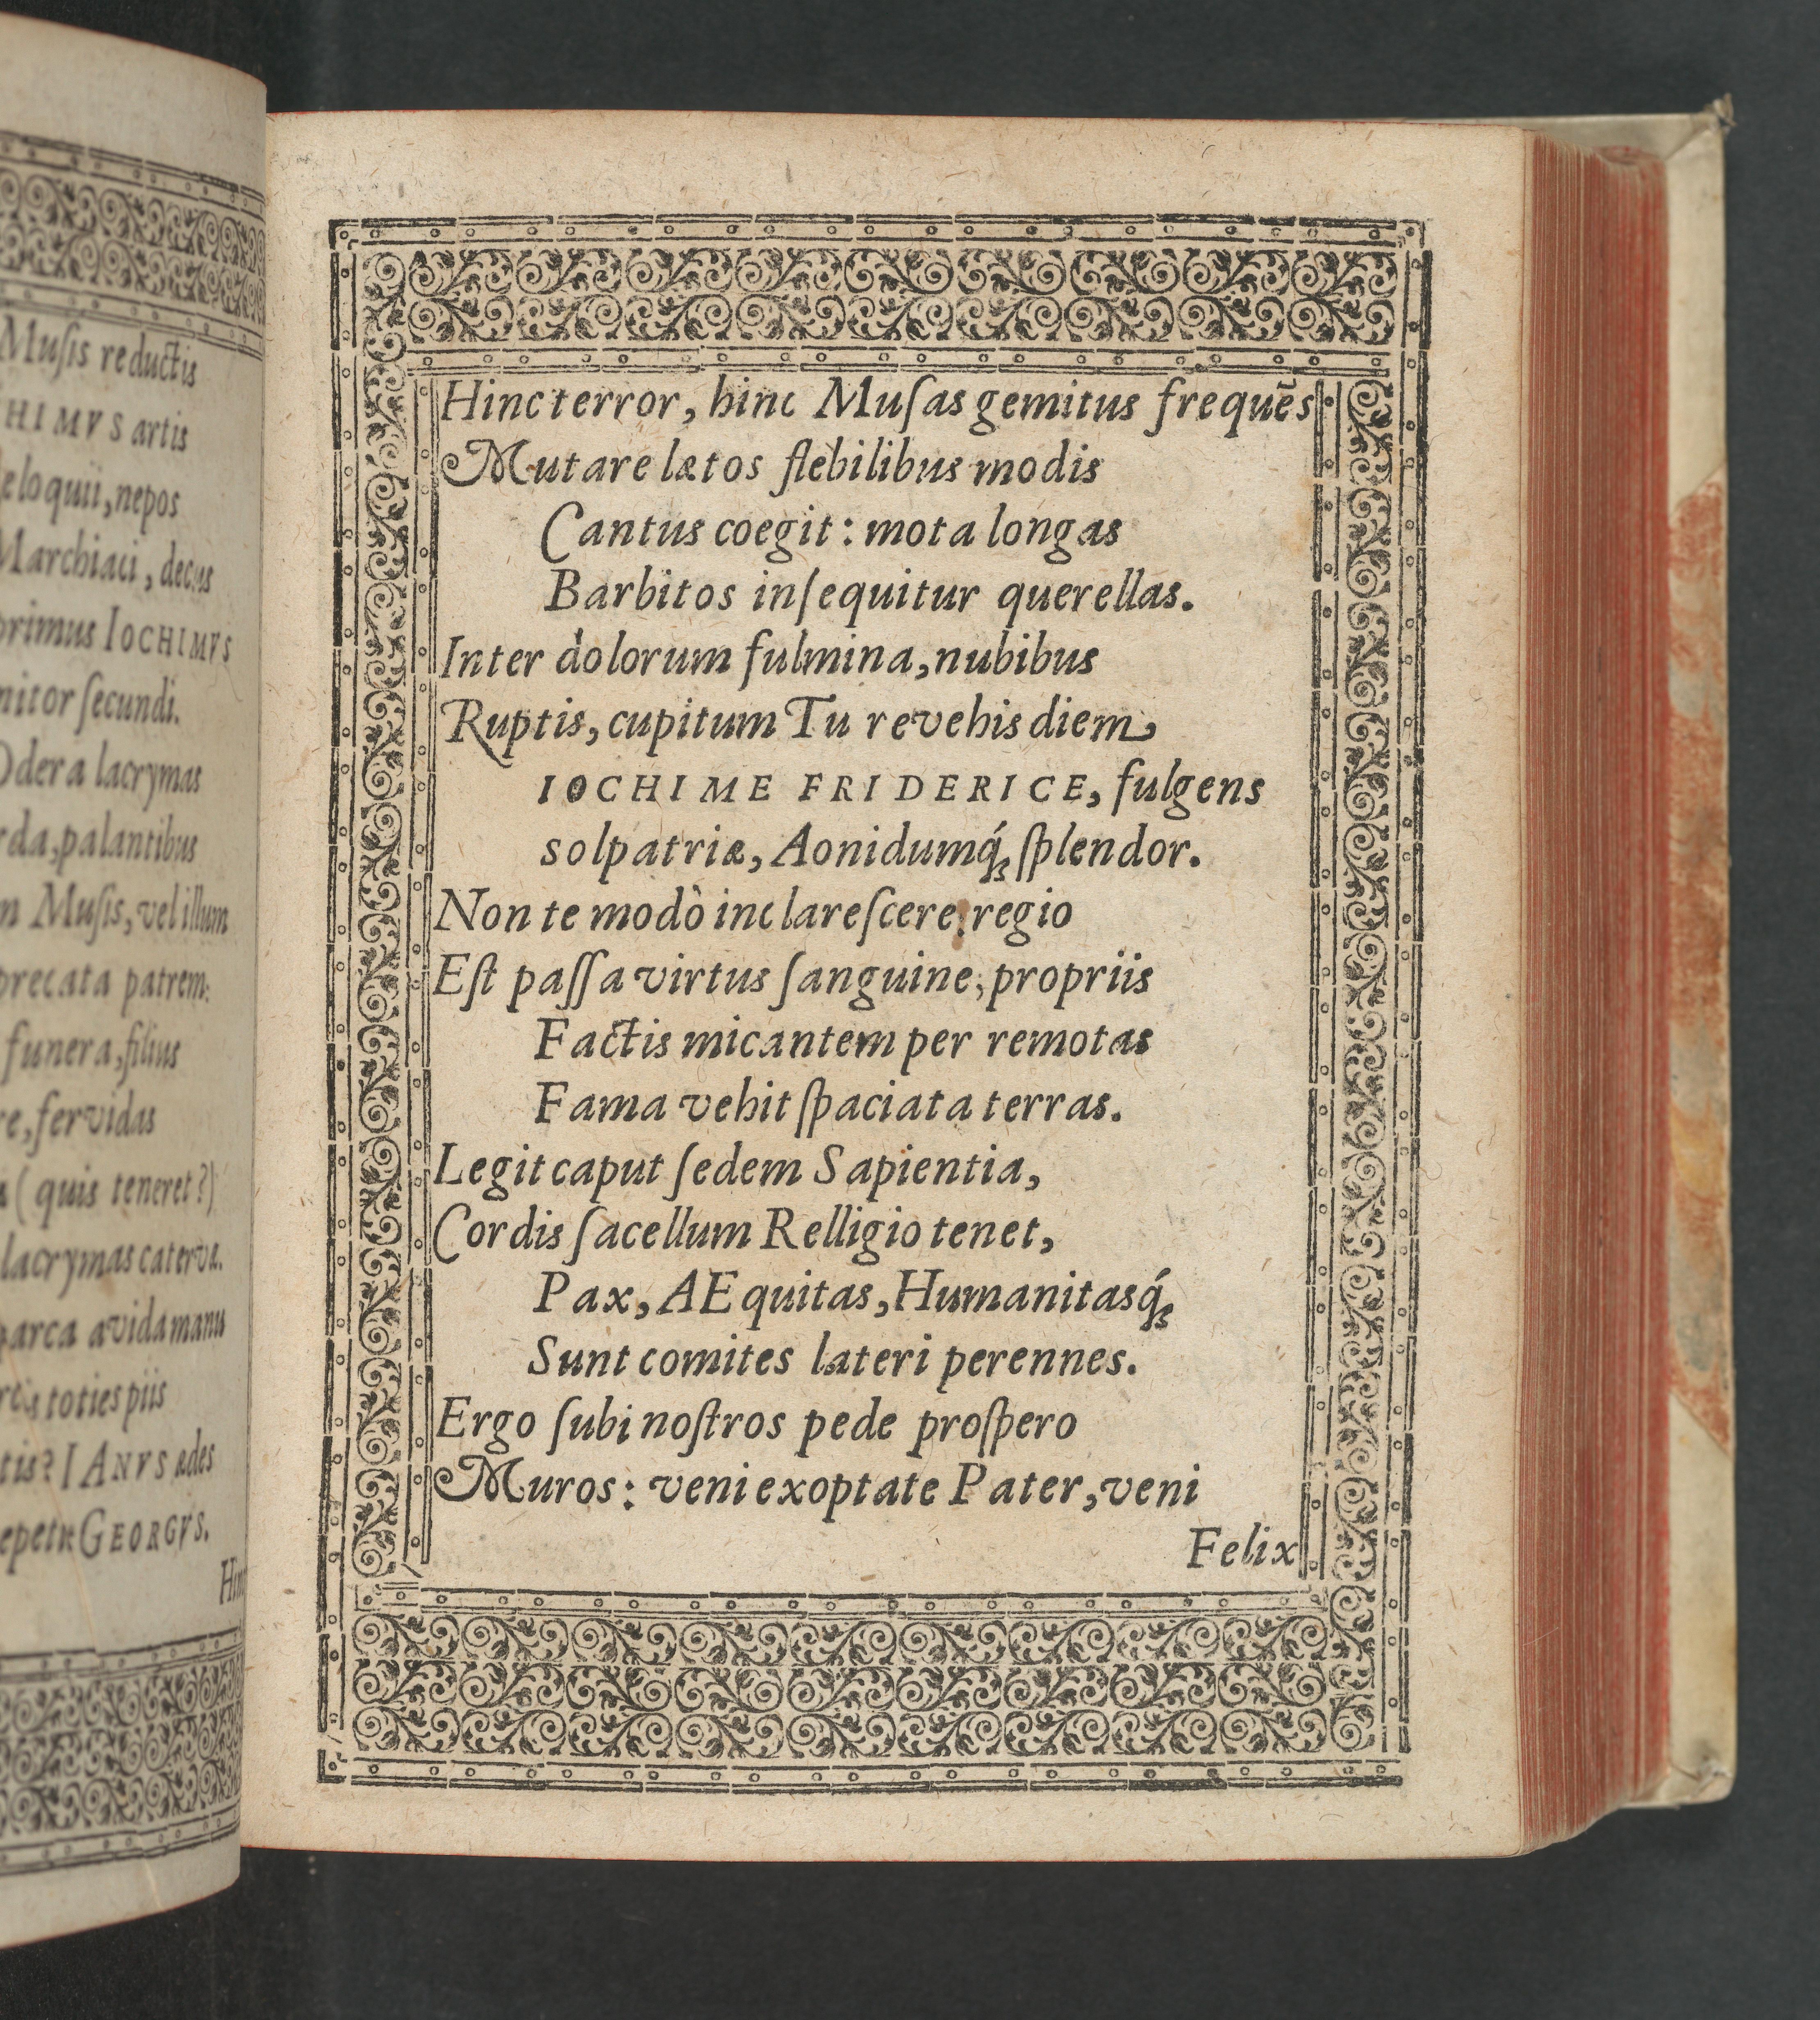 Muſis reductis
HIMVS artis
eloquii, nepos
Marchiaci, decus
primus IOCHIMVS
nitor ſecundi.
Odera lacrymas
rda, palantibus
m Muſis, vel illum
precata patrem:
funera, filius
re, fervidas
(quis teneret?)
lacrymas caterva.
parca avida manu
toties piis
tis? IANVS ædes
GEORGVS.
Hinc terror, hinc Muſas gemitus frequẽs
Mutare lætos flebilibus modis
Cantus coegit: mota longas
Barbitos inſequitur querellas.
Inter dolorum fulmina, nubibus
Ruptis, cupitum Tu revehis diem,
IOCHIME FRIDERICE, fulgens
sol patriæ, Aonidumq́ꝫ ſplendor.
Non te modò inclareſcere regio
Eſt paſſa virtus ſanguine; propriis
Factis micantem per remotas
Fama vehit ſpaciata terras.
Legit caput ſedem Sapientia,
Cordis ſacellum Relligio tenet,
Pax, AEquitas, Humanitasq́ꝫ
Sunt comites lateri perennes.
Ergo ſubi noſtros pede proſpero
Muros: veni exoptate Pater, veni
Felix